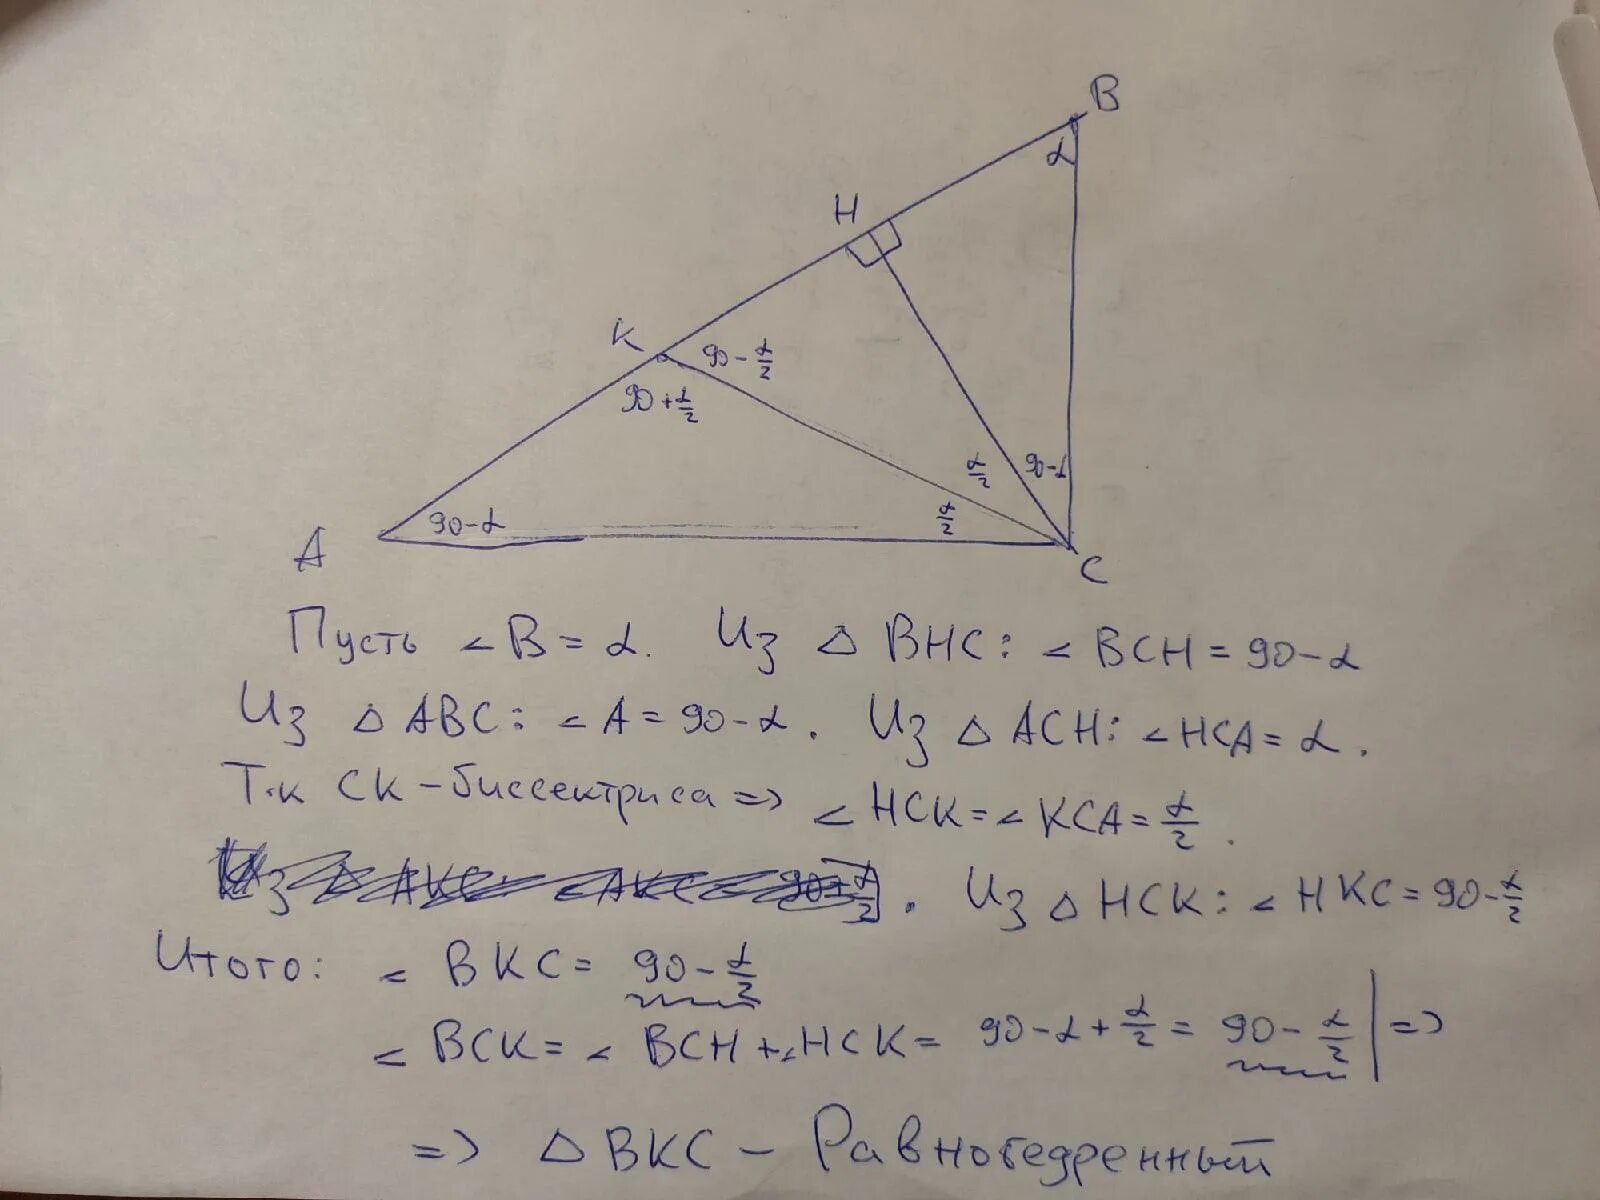 B
α
H
K
90 - α/2
90 + α/2
α/2
90-α
90-α
α/2
A
C
Пусть ∠B = α. Из △ BHC: ∠BCH = 90-α
Из △ ABC: ∠A = 90-α. Из △ ACH: ∠HCA = α.
Т.к CK - биссектриса => ∠HCK = ∠KCA = α/2.
Из △ AKC ∠AKC 90+α/2. Из △ HCK: ∠HKC = 90-α/2
Итого: ∠BKC = 90-α/2
∠BCK = ∠BCH + ∠HCK = 90-α+α/2 = 90-α/2 | =>
=> △ BKC - Равнобедренный